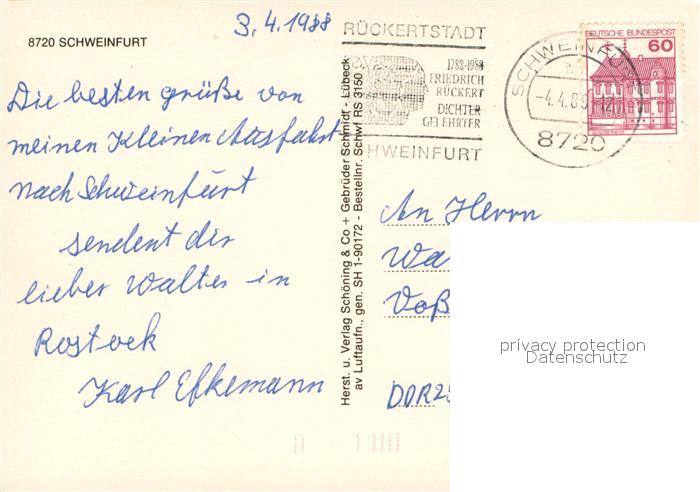 3.4.1988
8720 SCHWEINFURT
Die besten grüße von
meinen Kleinen Ausfahrt
nach Schweinfurt
sendent dir
lieber Walter in
Rostock
Karl Efkemann
Herst. u. Verlag Schöning & Co + Gebrüder Schmidt - Lübeck
av Luftaufn., gen. SH 1-90172 - Bestellnr. Schwf RS 3150
RÜCKERTSTADT
1788-1988
FRIEDRICH
RÜCKERT
DICHTER
GELEHRTER
SCHWEINFURT
SCHWEINFURT
-4.4.88
8720
DEUTSCHE BUNDESPOST
60
An Herrn
Wa
Voß
DDR 25
privacy protection
Datenschutz